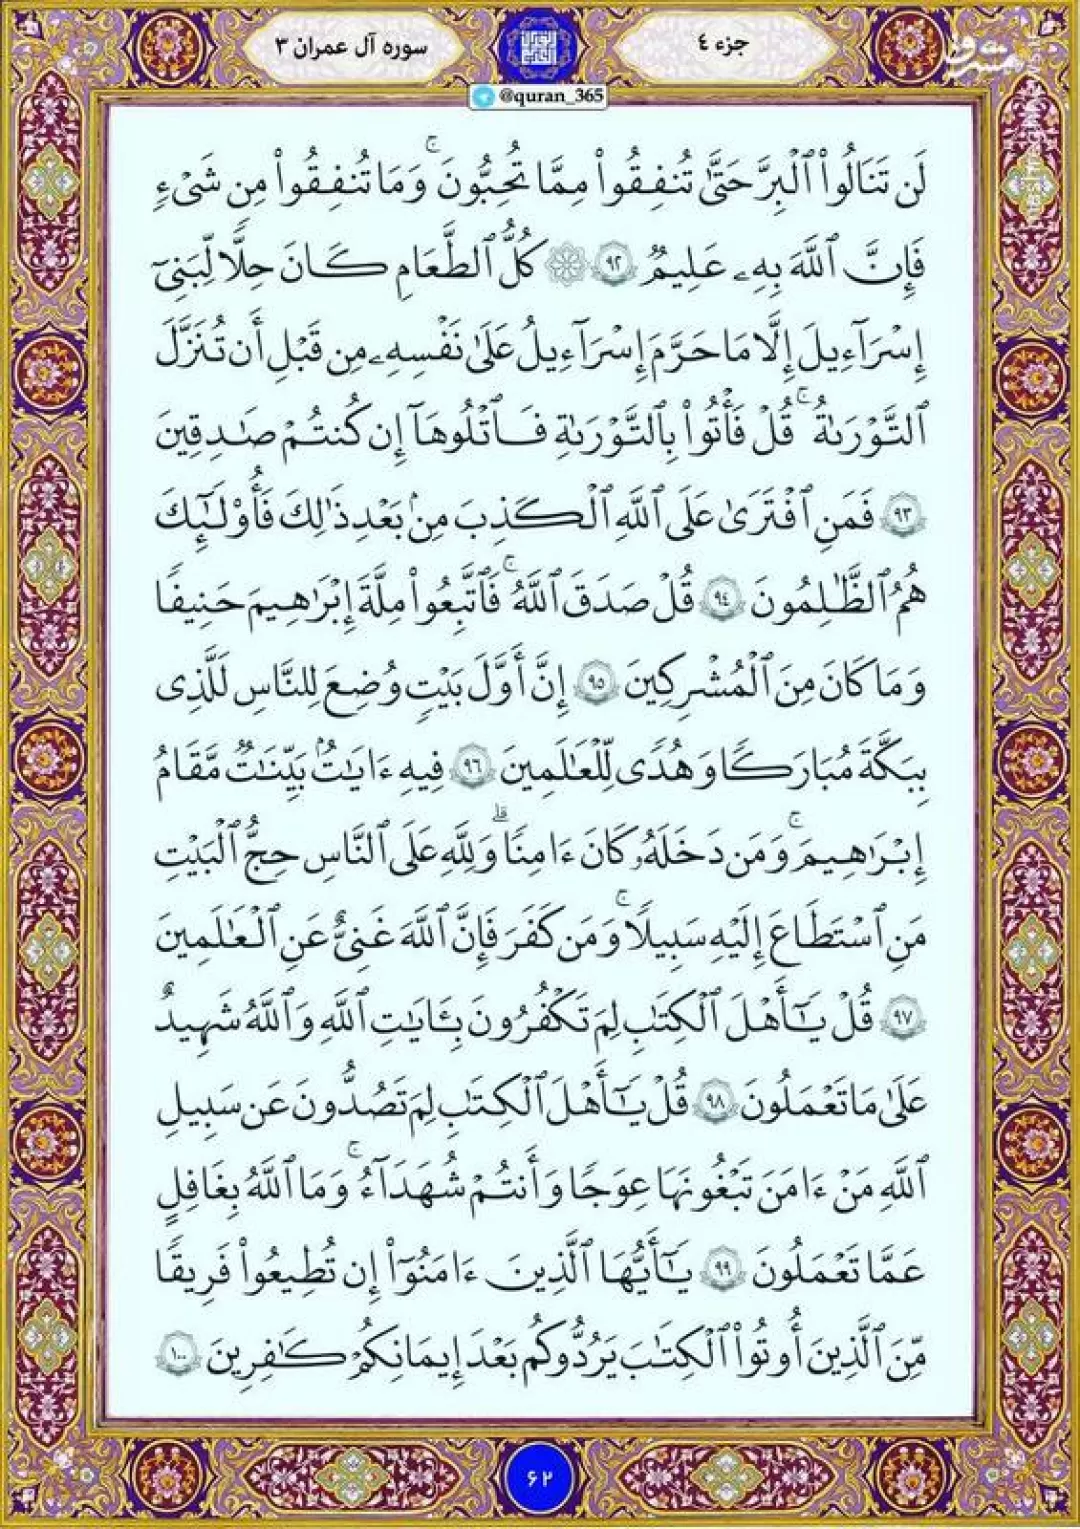 جزء ۴
سوره آل عمران ۳
@quran_365
لَن تَنَالُوا۟ ٱلْبِرَّ حَتَّىٰ تُنفِقُوا۟ مِمَّا تُحِبُّونَ ۚ وَمَا تُنفِقُوا۟ مِن شَىْءٍ
فَإِنَّ ٱللَّهَ بِهِۦ عَلِيمٌ ۹۲ ۞ كُلُّ ٱلطَّعَامِ كَانَ حِلًّا لِّبَنِىٓ
إِسْرَٰٓءِيلَ إِلَّا مَا حَرَّمَ إِسْرَٰٓءِيلُ عَلَىٰ نَفْسِهِۦ مِن قَبْلِ أَن تُنَزَّلَ
ٱلتَّوْرَىٰةُ ۗ قُلْ فَأْتُوا۟ بِٱلتَّوْرَىٰةِ فَٱتْلُوهَآ إِن كُنتُمْ صَٰدِقِينَ
۹۳ فَمَنِ ٱفْتَرَىٰ عَلَى ٱللَّهِ ٱلْكَذِبَ مِنۢ بَعْدِ ذَٰلِكَ فَأُو۟لَٰٓئِكَ
هُمُ ٱلظَّٰلِمُونَ ۹۴ قُلْ صَدَقَ ٱللَّهُ ۗ فَٱتَّبِعُوا۟ مِلَّةَ إِبْرَٰهِيمَ حَنِيفًا
وَمَا كَانَ مِنَ ٱلْمُشْرِكِينَ ۹۵ إِنَّ أَوَّلَ بَيْتٍ وُضِعَ لِلنَّاسِ لَلَّذِى
بِبَكَّةَ مُبَارَكًا وَهُدًى لِّلْعَٰلَمِينَ ۹۶ فِيهِ ءَايَٰتٌۢ بَيِّنَٰتٌ مَّقَامُ
إِبْرَٰهِيمَ ۖ وَمَن دَخَلَهُۥ كَانَ ءَامِنًا ۗ وَلِلَّهِ عَلَى ٱلنَّاسِ حِجُّ ٱلْبَيْتِ
مَنِ ٱسْتَطَاعَ إِلَيْهِ سَبِيلًا ۚ وَمَن كَفَرَ فَإِنَّ ٱللَّهَ غَنِىٌّ عَنِ ٱلْعَٰلَمِينَ
۹۷ قُلْ يَٰٓأَهْلَ ٱلْكِتَٰبِ لِمَ تَكْفُرُونَ بِـَٔايَٰتِ ٱللَّهِ وَٱللَّهُ شَهِيدٌ
عَلَىٰ مَا تَعْمَلُونَ ۹۸ قُلْ يَٰٓأَهْلَ ٱلْكِتَٰبِ لِمَ تَصُدُّونَ عَن سَبِيلِ
ٱللَّهِ مَنْ ءَامَنَ تَبْغُونَهَا عِوَجًا وَأَنتُمْ شُهَدَآءُ ۗ وَمَا ٱللَّهُ بِغَٰفِلٍ
عَمَّا تَعْمَلُونَ ۹۹ يَٰٓأَيُّهَا ٱلَّذِينَ ءَامَنُوٓا۟ إِن تُطِيعُوا۟ فَرِيقًا
مِّنَ ٱلَّذِينَ أُوتُوا۟ ٱلْكِتَٰبَ يَرُدُّوكُم بَعْدَ إِيمَٰنِكُمْ كَٰفِرِينَ ۱۰۰
۶۲